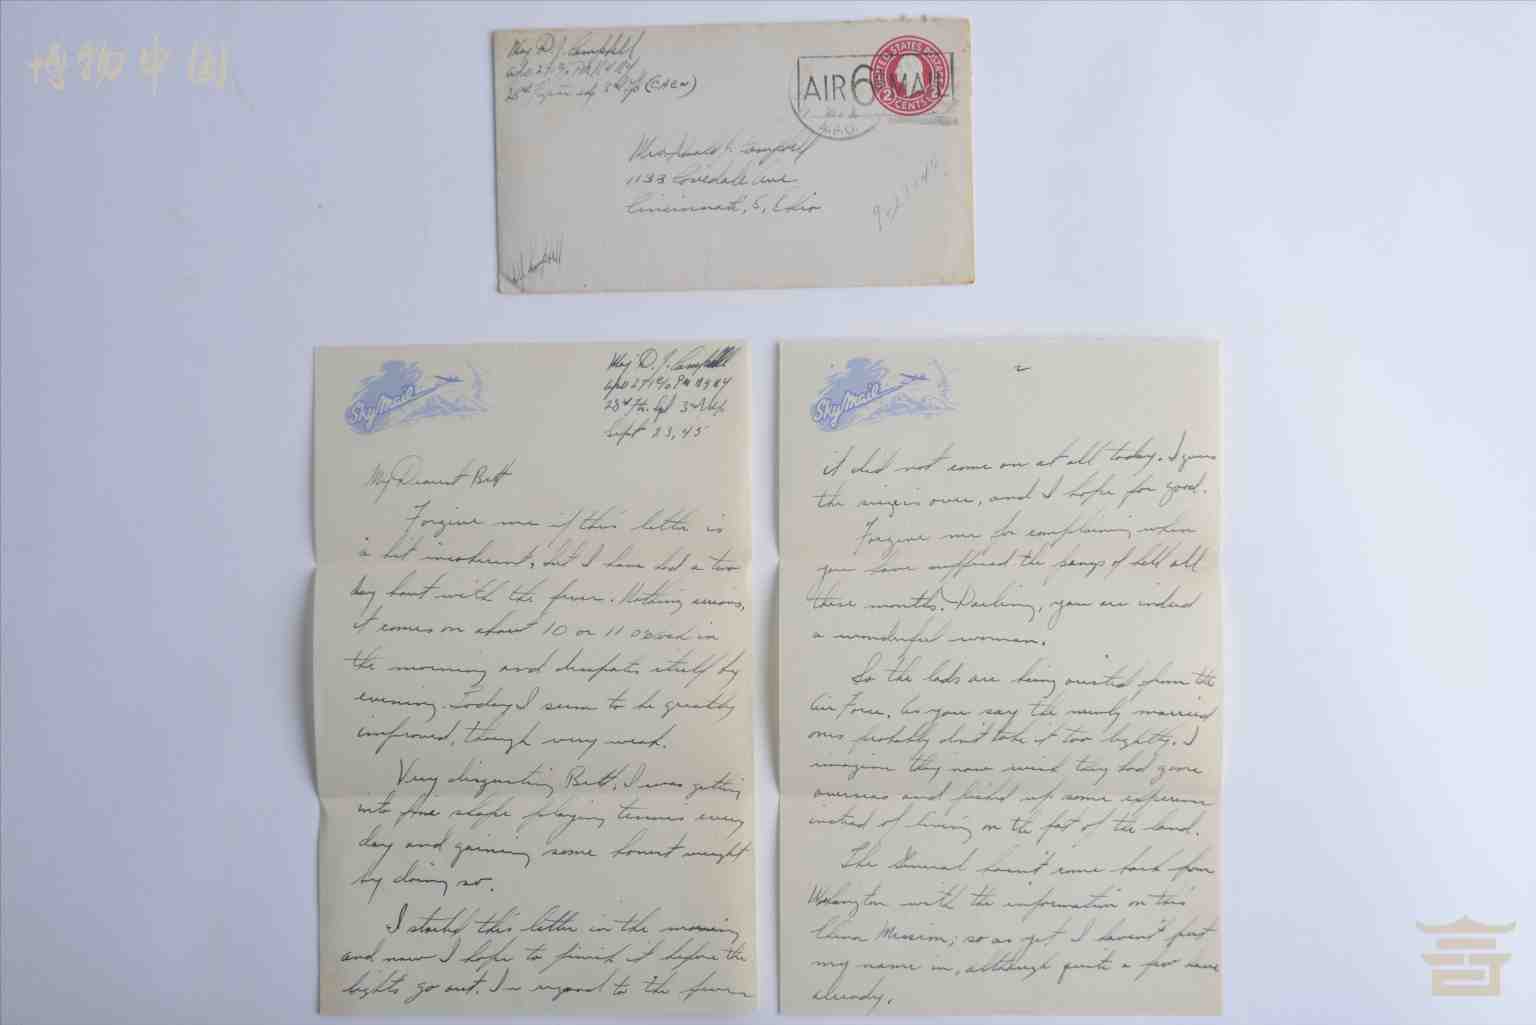 博物中国
Maj D. J. Campbell
APO 271 c/o PM NY NY
28th 3rd (CACW)
AIR 6¢ MAIL
UNITED STATES POSTAGE
2 CENTS 2
Mrs Donald J. Campbell
1133 Covedale Ave
Cincinnati, 5, Ohio
D J Campbell
Sky Mail
Maj D. J. Campbell
APO 271 c/o PM NY NY
28th Ftr. Sq 3rd Grp
Sept 23, 45
My Dearest Bett
Forgive me if this letter is
a bit incoherent, but I have had a two
day bout with the fever. Nothing serious,
it comes on about 10 or 11 o'clock in
the morning and dissipates itself by
evening. Today I seem to be greatly
improved, though very weak.
Very disgusting Bett, I was getting
into fine shape playing tennis every
day and gaining some honest weight
by doing so.
I started this letter in the morning
and now I hope to finish it before the
lights go out. In regard to the fever
Sky Mail
2
it did not come on at all today. I guess
the siege is over, and I hope for good.
Forgive me for complaining when
you have suffered the pangs of hell all
these months. Darling, you are indeed
a wonderful woman.
So the lads are being ousted from the
Air Force. As you say the newly married
ones probably don't take it too lightly. I
imagine they now wish they had gone
overseas and picked up some experience
instead of living on the fat of the land.
The General hasn't come back from
Washington with the information on this
China Mission; so as yet I haven't put
my name in, although quite a few have
already.